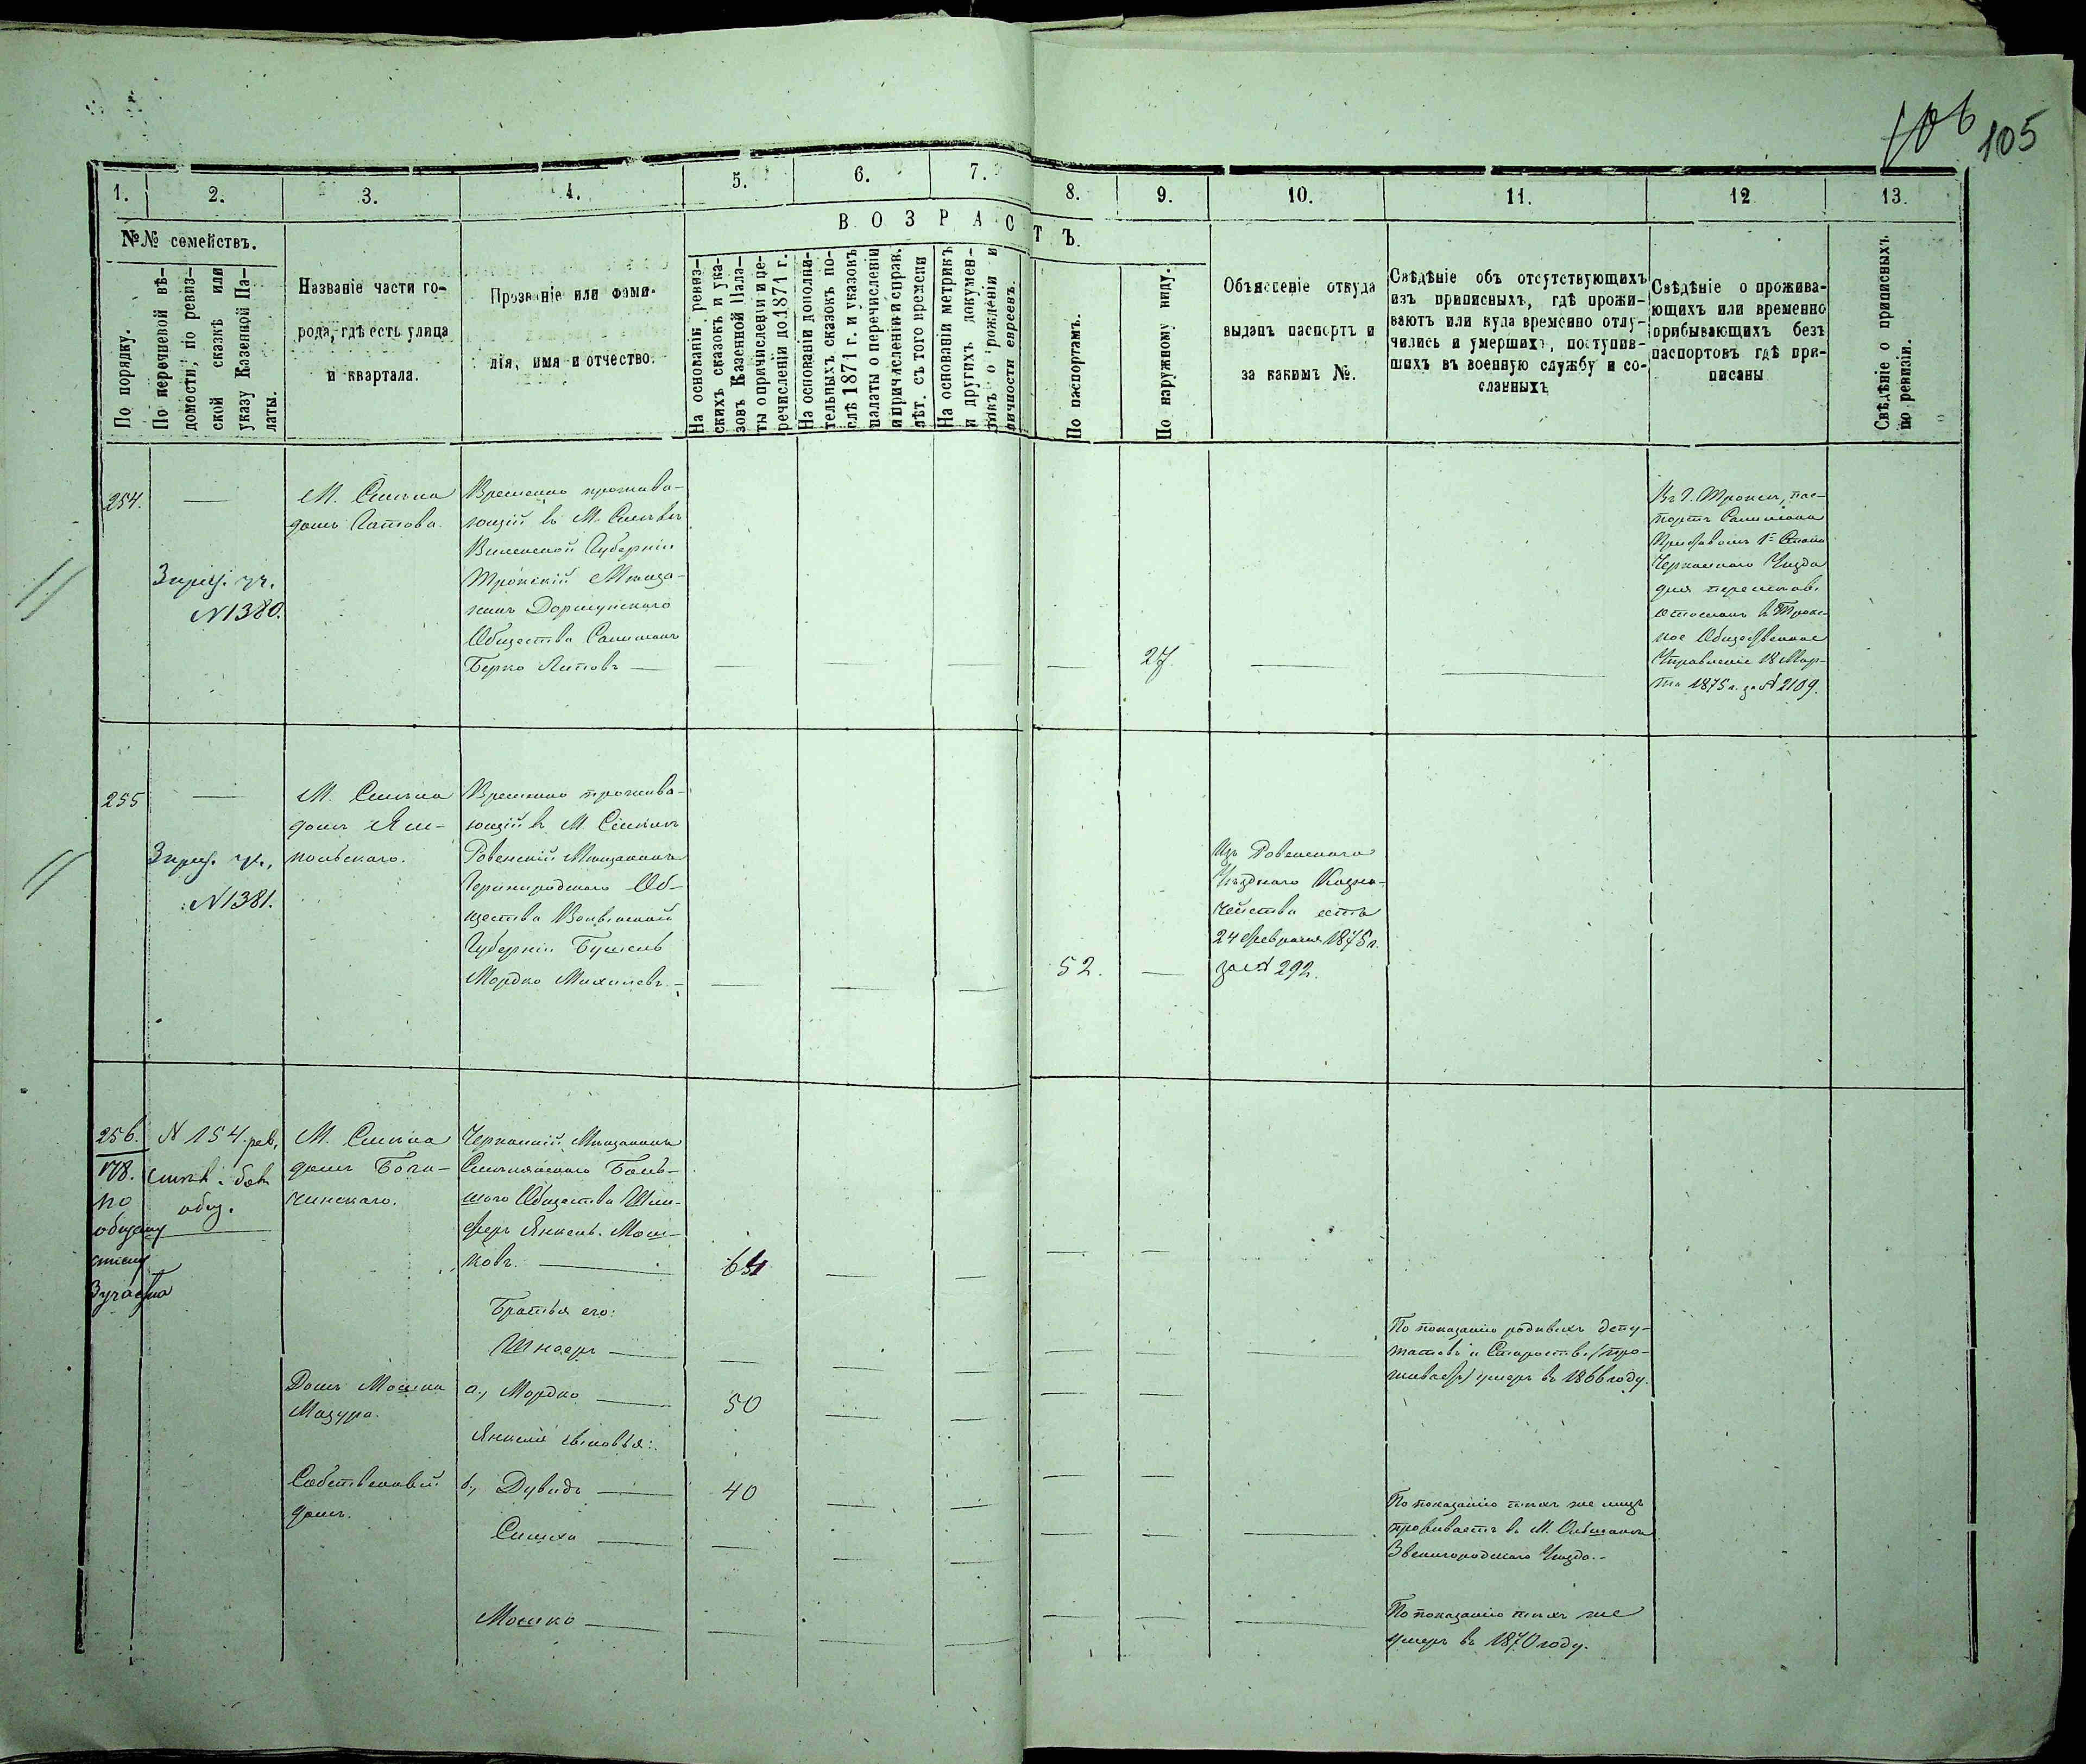 106 105
1. 2. 3. 4. 5. 6. 7. 8. 9. 10. 11. 12 13.
№№ семействъ.
По порядку.
По перечневой вѣ-
домости, по ревиз-
ской сказкѣ или
указу Казенной Па-
латы.
Названіе части го-
рода, гдѣ есть улица
и квартала.
Прозваніе или фами-
лія, имя и отчество.
ВОЗРАСТЪ.
На основаніи ревиз-
скихъ сказокъ и ука-
зовъ Казенной Пала-
ты о причислеціи и пе-
речисленіи до 1871 г.
На основаніи дополни-
тельныхъ сказокъ по-
слѣ 1871 г. и указокъ
палаты о перечисленіи
и причисленіи и справ.
лѣт. съ того времени
На основаніи метрикъ
и другихъ докумен-
о рожденіи и
личности евреевъ.
По паспортамъ.
По наружному виду.
Объясненіе откуда
выданъ паспортъ и
за какимъ №.
Свѣдѣніе объ отсутствующихъ
изъ приписныхъ, гдѣ прожи-
ваютъ или куда временно отлу-
чились и умершихъ, поступив-
шихъ въ военную службу и со-
сланныхъ
Свѣдѣніе о прожива-
ющихъ или временно
прибывающихъ безъ
паспортовъ гдѣ при-
писаны
Свѣдѣніе о приписныхъ
по ревизіи.
254.
3 уч.
N1380.
М. Смѣла
домъ
Временно прожива-
ющій въ М. Смѣлѣ
Виленской Губерніи
Трокскій Мѣща-
нинъ
Общества
Берко
27
Въ Г. Троки, пас-
портъ
1го Стана
Черкасскаго Уѣзда
для
въ Трок-
ское Общественное
Управленіе 18 Мар-
та 1875 г. за № 2109.
255
3 уч.
N1381.
М. Смѣла
домъ Ям-
польскаго.
Временно прожива-
ющій въ М. Смѣлѣ
Ровенскій Мѣщанинъ
Об-
щества Волынской
Губерніи
Мордко
52.
Изъ Ровенскаго
Уѣзднаго Казна-
чейства отъ
24 Февраля 1875 г.
за № 292.
256.
178.
по
общему
списку
3 участка
N 154. рев.
общ.
М. Смѣла
домъ Бога-
чинскаго.
Черкасскій Мѣщанинъ
Смѣлянскаго Боль-
шаго Общества Шли-
феръ Янкель Мош-
ковъ.
64
Братья его:
Шнееръ
По показанію родныхъ депу-
татовъ и Старостъ
умеръ въ 1866 году.
Домъ Мошка
Мазура.
а., Мордко
50
Янкеля сыновья:
Собственный
домъ.
б., Дувидъ
40
Симха
По показанію тѣхъ же лицъ
проживаетъ въ М. Ольшанѣ
Звенигородскаго Уѣзда.
Мошко
По показанію тѣхъ же
умеръ въ 1870 году.